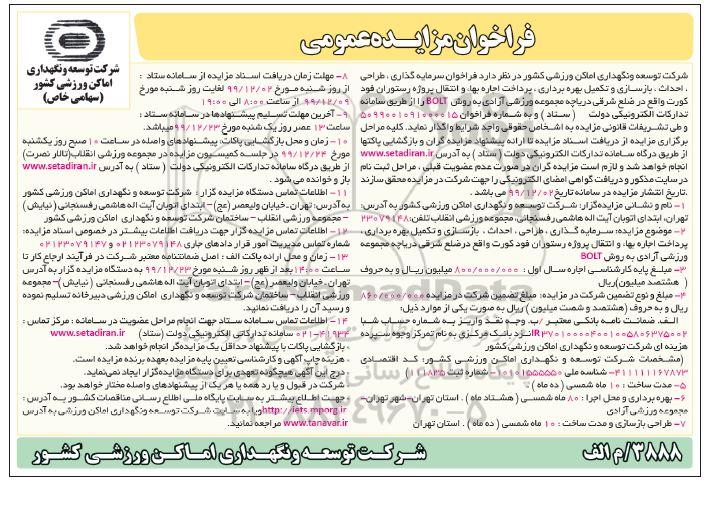 فراخوان مزایده عمومی
شرکت توسعه و نگهداری
اماکن ورزشی کشور
(سهامی خاص)
شرکت توسعه ونگهداری اماکن ورزشی کشور در نظر دارد فراخوان سرمایه گذاری ، طراحی
، احداث ، بازسازی و تکمیل بهره برداری ، پرداخت اجاره بها، و انتقال پروژه رستوران فود
کورت واقع در ضلع شرقی دریاچه مجموعه ورزشی آزادی به روش BOLT را از طریق سامانه
تدارکات الکترونیکی دولت ( ستاد ) و به شماره فراخوان ۵۰۹۹۰۰۱۰۹۱۰۰۰۰۱۵
و طی تشریفات قانونی مزایده به اشخاص حقوقی واجد شرایط واگذار نماید. کلیه مراحل
برگزاری مزایده از دریافت اسناد مزایده تا ارائه پیشنهاد مزایده گران و بازگشایی پاکتها
از طریق درگاه سامانه تدارکات الکترونیکی دولت ( ستاد ) به آدرس www.setadiran.ir
انجام خواهد شد و لازم است مزایده گران در صورت عدم عضویت قبلی ، مراحل ثبت نام
در سایت مذکور و دریافت گواهی امضای الکترونیکی را جهت شرکت در مزایده محقق سازند
.تاریخ انتشار مزایده در سامانه تاریخ ۹۹/۱۲/۰۲ می باشد .
۱- نام و نشانی مزایده‌گزار: شرکت توسعه و نگهداری اماکن ورزشی کشور به آدرس:
تهران، ابتدای اتوبان آیت اله هاشمی رفسنجانی، مجموعه ورزشی انقلاب تلفن: ۲۳۰۷۹۱۴۸
۲- موضوع مزایده: سرمایه گذاری ، طراحی ، احداث ، بازسازی و تکمیل بهره برداری ،
پرداخت اجاره بها، و انتقال پروژه رستوران فود کورت واقع درضلع شرقی دریاچه مجموعه
ورزشی آزادی به روش BOLT
۳- مبلغ پایه کارشناسی اجاره سال اول : ۸۰۰/۰۰۰/۰۰۰ میلیون ریال و به حروف
( هشتصد میلیون) ریال
۴- مبلغ و نوع تضمین شرکت در مزایده: مبلغ تضمین شرکت در مزایده ۸۶۰/۰۰۰/۰۰۰
ریال و به حروف (هشتصد و شصت میلیون ) ریال به صورت یکی از موارد ذیل:
الف. ضمانت نامه بانکی معتبر /ب. وجه نقد واریز به شماره حساب شبا
IR۳۷۰۱۰۰۰۰۴۰۰۱۰۰۵۸۰۶۳۷۵۰۰۲ نزد بانک مرکزی به نام تمرکز وجوه سپرده
هزینه ای شرکت توسعه و نگهداری اماکن ورزشی کشور
(مشخصات شرکت توسعه و نگهداری اماکن ورزشی کشور: کد اقتصادی
۴۱۱۱۱۱۱۶۷۸۷۳– شناسه ملی ۱۰۱۰۱۵۵۵۵۵۰– شماره ثبت ۱۱۱۸۳۵ )
۵- مدت ساخت : ۱۰ ماه شمسی ( ده ماه ) .
۶- بهره برداری و محل اجرا : ۸۰ ماه شمسی ( هشتاد ماه ) . استان تهران-شهر تهران-
مجموعه ورزشی آزادی
۷- طراحی بازسازی و مدت ساخت : ۱۰ ماه شمسی ( ده ماه ) . استان تهران
۸- مهلت زمان دریافت اسناد مزایده از سامانه ستاد :
از روز شنبه مورخ ۹۹/۱۲/۰۲ لغایت روز شنبه مورخ
۹۹/۱۲/۰۹ از ساعت ۸:۰۰ الی ۱۹:۰۰
۹- آخرین مهلت تسلیم پیشنهادها در سامانه ستاد :
ساعت ۱۳ عصر روز یک شنبه مورخ ۹۹/۱۲/۲۳ میباشد.
۱۰- زمان و محل بازگشایی پاکات: پیشنهادهای واصله در ساعت ۱۰ صبح روز یکشنبه
مورخ ۹۹/۱۲/۲۴ در جلسه کمیسیون مزایده در مجموعه ورزشی انقلاب(تالار نصرت)
از طریق درگاه سامانه تدارکات الکترونیکی دولت ( ستاد ) به آدرس www.setadiran.ir
باز و خوانده می شود .
۱۱- اطلاعات تماس دستگاه مزایده گزار : شرکت توسعه و نگهداری اماکن ورزشی کشور
به آدرس: تهران - خیابان ولیعصر (عج) – ابتدای اتوبان آیت اله هاشمی رفسنجانی ( نیایش )
– مجموعه ورزشی انقلاب – ساختمان شرکت توسعه و نگهداری اماکن ورزشی کشور
۱۲- اطلاعات تماس مزایده گزار جهت دریافت اطلاعات بیشتر در خصوص اسناد مزایده:
شماره تماس مدیریت امور قرار دادهای جاری ۰۲۱۲۳۰۷۹۱۴۸ و ۰۲۱۲۳۰۷۹۱۴۷
۱۳- زمان و محل ارائه پاکت الف : اصل ضمانتنامه معتبر شرکت در فرآیند ارجاع کار تا
ساعت ۱۴:۰۰ بعد از ظهر روز شنبه مورخ ۹۹/۱۲/۲۳ به دستگاه مزایده گزار به آدرس
تهران - خیابان ولیعصر (عج) – ابتدای اتوبان آیت اله هاشمی رفسنجانی ( نیایش) – مجموعه
ورزشی انقلاب – ساختمان شرکت توسعه و نگهداری اماکن ورزشی دبیرخانه تسلیم نموده
و رسید آن را دریافت نمائید.
۱۴- اطلاعات تماس سامانه ستاد جهت انجام مراحل عضویت در سامانه : مرکز تماس :
۰۲۱-۴۱۹۳۴ سامانه تدارکاتی الکترونیکی دولت (ستاد) www.setadiran.ir
. بازگشایی پاکات با پیشنهاد حداقل یک مزایده‌گر انجام خواهد شد.
. هزینه چاپ آگهی و کارشناسی تعیین پایه مزایده بعهده برنده مزایده است.
. درج این آگهی هیچگونه تعهدی برای دستگاه مزایده‌گزار ایجاد نمی‌نماید.
. شرکت در قبول و یا رد همه یا هر یک از پیشنهادهای واصله مختار خواهد بود.
. جهت اطلاع بیشتر به سایت پایگاه ملی اطلاع رسانی مناقصات کشور به آدرس :
http://iets.mporg.ir ویا به سایت شرکت توسعه ونگهداری اماکن ورزشی به آدرس
www.tanavar.ir مراجعه نمائید.
۳۸۸۸/م الف
شرکت توسعه ونگهداری اماکن ورزشی کشور